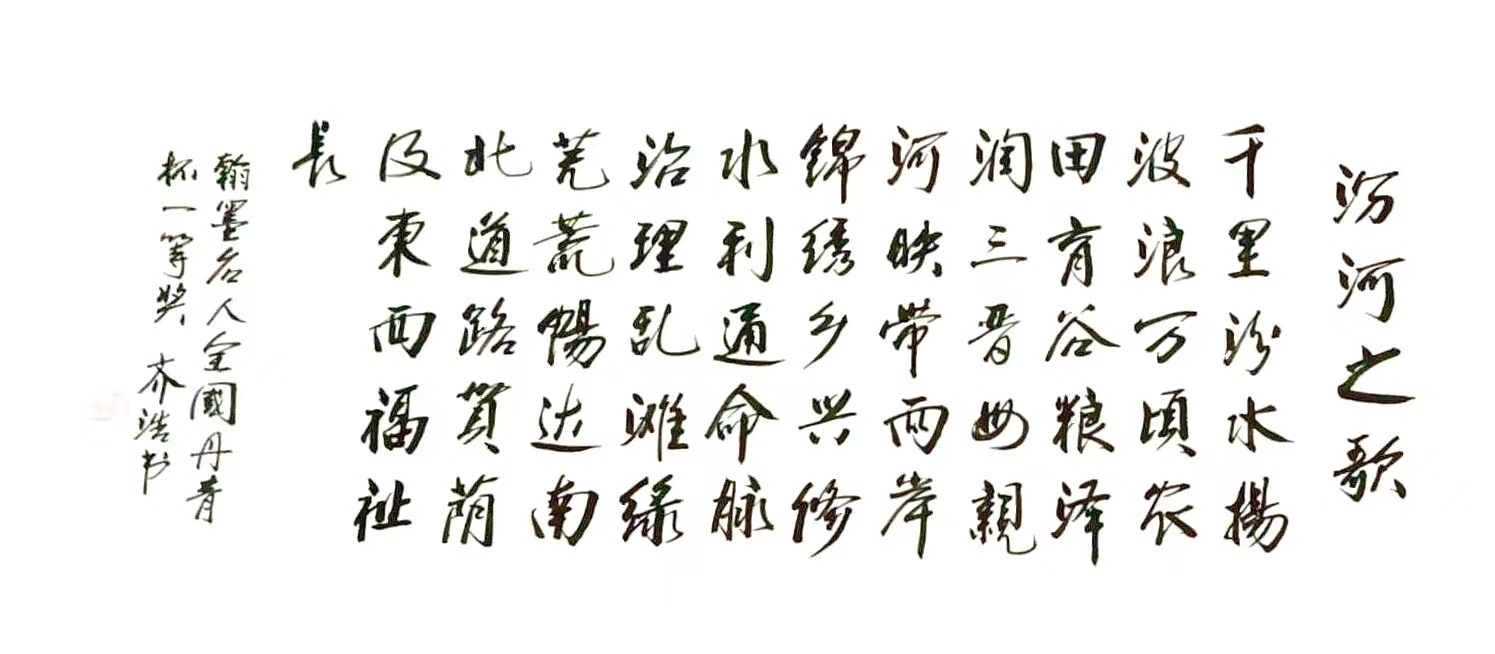 汾河之歌
千里汾水揚
波浪万頃农
田育谷粮泽
润三晋母親
河映带两岸
锦绣乡兴修
水利通命脉
治理乱滩绿
芜荒暢达南
北道路贯荫
及東西福祉
長
翰墨名人全國丹青
杯一等奖 齐浩书